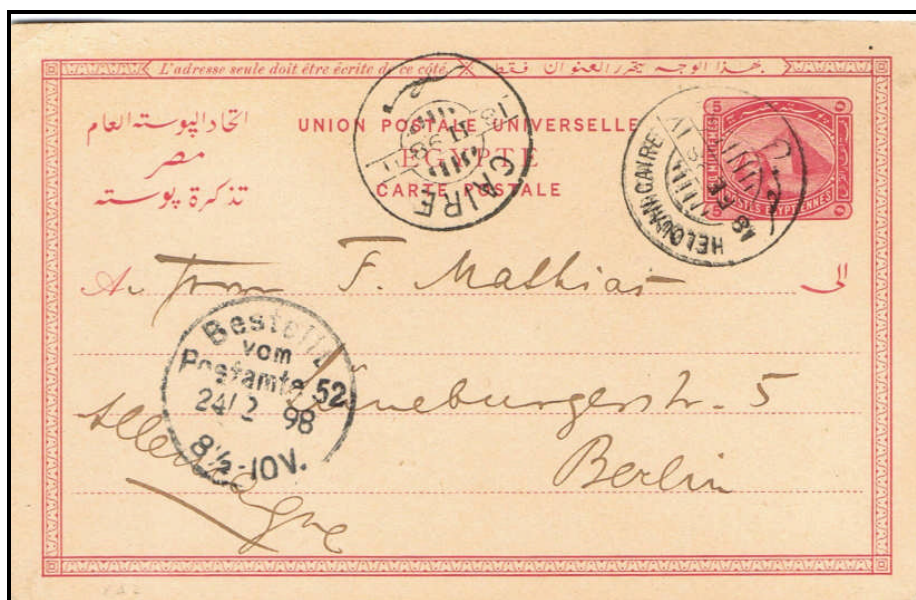 L'adresse seule doit être écrite de ce côté. بهذا الوجه يتحرر العنوان فقط
اتحاد البوسته العام
مصر
تذكرة بوسته
UNION POSTALE UNIVERSELLE
EGYPTE
CARTE POSTALE
CAIRE
HELOUAN CAIRE
5 5
POSTES EGYPTIENNES
5 5
A
From F. Mathias
الى
Bestellt
vom
Postamte 52
24/2 98
8½-10V.
Lüneburgerstr. 5
Berlin
Allemagne